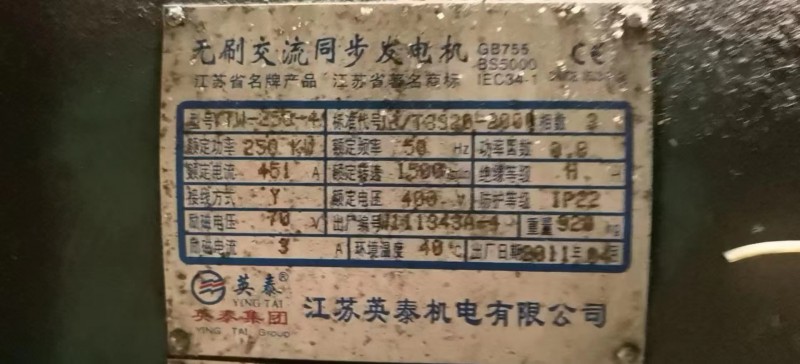 无刷交流同步发电机 GB755
BS5000
江苏省名牌产品 江苏省著名商标 IEC34-1
CE
型号 YTW-250-4 标准代号 相数 3
额定功率 250 KW 额定频率 50 Hz 功率因数 0.8
额定电流 451 A 额定转速 1500 绝缘等级 H
接线方式 Y 额定电压 400 V 防护等级 IP22
励磁电压 70 V 出厂编号 重量 920 kg
励磁电流 3 A 环境温度 40 ℃ 出厂日期 2011年 月
英泰®
YING TAI
英泰集团
YING TAI Group
江苏英泰机电有限公司